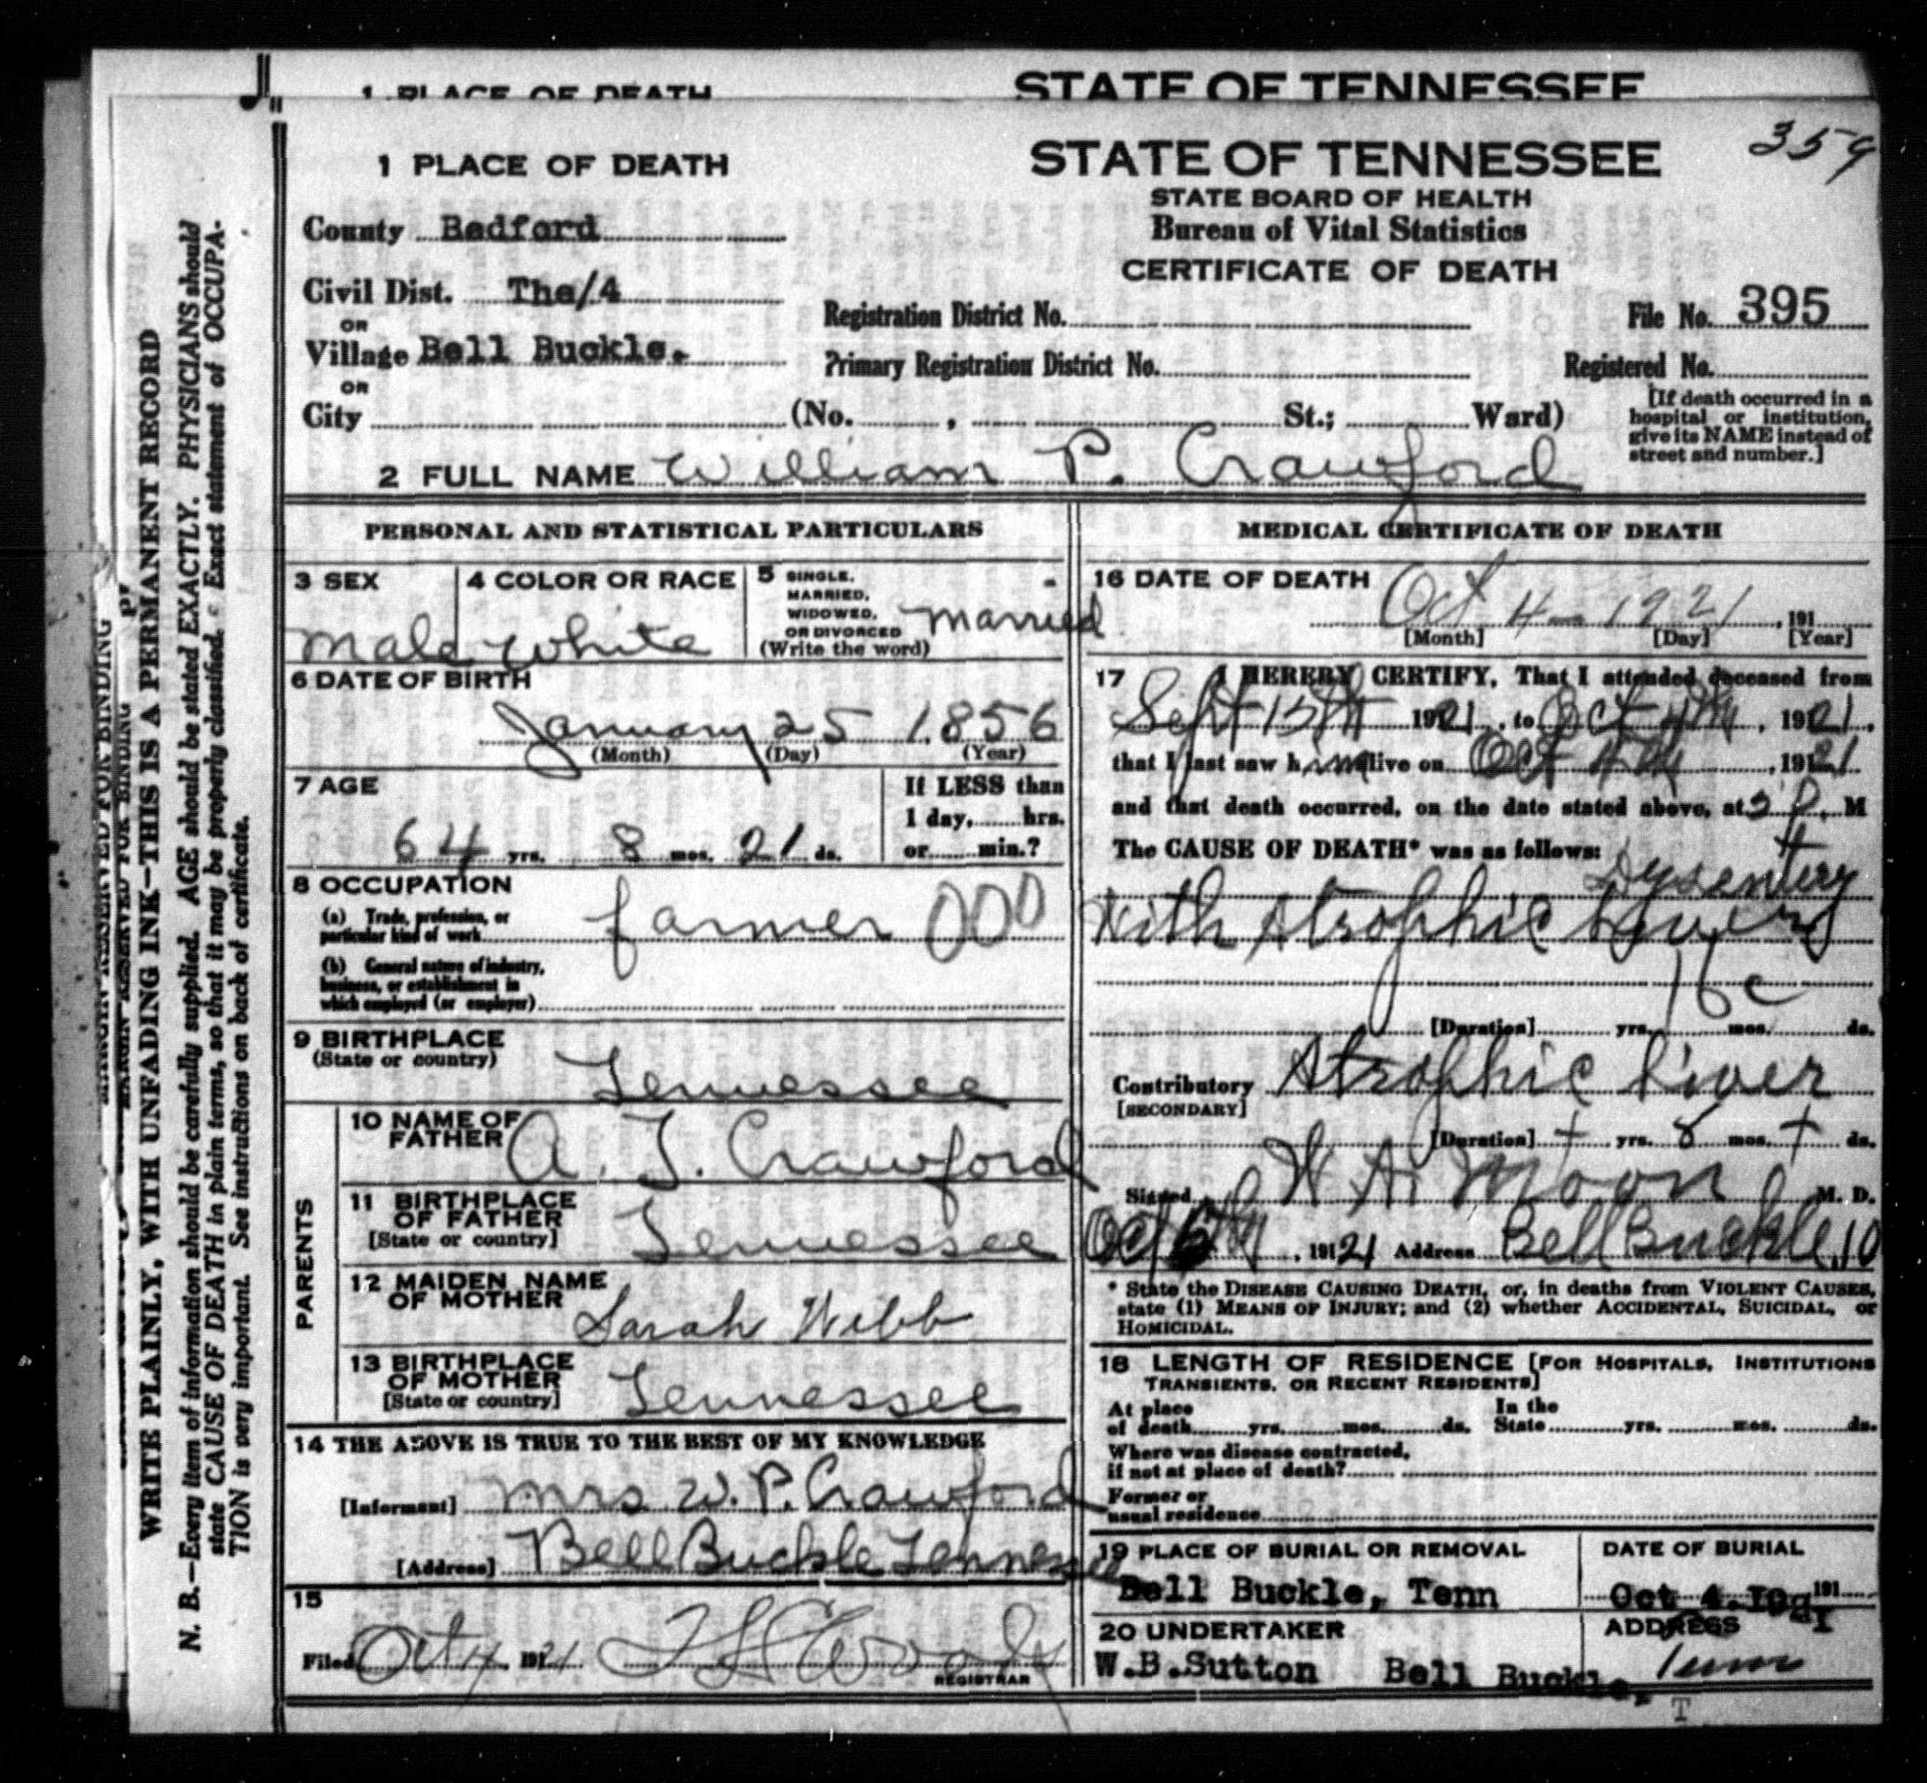 1 PLACE OF DEATH STATE OF TENNESSEE
359
1 PLACE OF DEATH
STATE OF TENNESSEE
STATE BOARD OF HEALTH
Bureau of Vital Statistics
CERTIFICATE OF DEATH
County Bedford
Civil Dist. The/4
OR
Village Bell Buckle.
OR
City (No. , St.; Ward)
Registration District No. File No. 395
Primary Registration District No. Registered No.
[If death occurred in a
hospital or institution,
give its NAME instead of
street and number.]
2 FULL NAME William P. Crawford
PERSONAL AND STATISTICAL PARTICULARS
3 SEX
Male
4 COLOR OR RACE
White
5 SINGLE,
MARRIED,
WIDOWED,
OR DIVORCED
(Write the word)
Married
6 DATE OF BIRTH
January 25 1856
(Month) (Day) (Year)
7 AGE
64 yrs. 8 mos. 21 ds.
If LESS than
1 day, hrs.
or min.?
8 OCCUPATION
(a) Trade, profession, or
particular kind of work farmer 000
(b) General nature of industry,
business, or establishment in
which employed (or employer)
9 BIRTHPLACE
(State or country)
Tennessee
PARENTS
10 NAME OF
FATHER A. T. Crawford
11 BIRTHPLACE
OF FATHER
[State or country] Tennessee
12 MAIDEN NAME
OF MOTHER Sarah Webb
13 BIRTHPLACE
OF MOTHER
[State or country] Tennessee
14 THE ABOVE IS TRUE TO THE BEST OF MY KNOWLEDGE
[Informant] Mrs W. P. Crawford
[Address] Bell Buckle Tennessee
15
Filed Oct 4, 1921
REGISTRAR
MEDICAL CERTIFICATE OF DEATH
16 DATE OF DEATH
Oct 4 1921, 191
[Month] [Day] [Year]
17 I HEREBY CERTIFY, That I attended deceased from
Sept 15th 1921, to Oct 4th, 1921,
that I last saw him alive on Oct 4th, 1921
and that death occurred, on the date stated above, at P. M
The CAUSE OF DEATH* was as follows:
Dysentery
With Atrophic Liver
16 c
[Duration] yrs. mos. ds.
Contributory Atrophic Liver
[SECONDARY]
[Duration] + yrs. 8 mos. + ds.
Signed W A Moon M. D.
Oct, 1921 Address Bell Buckle, 10
* State the DISEASE CAUSING DEATH, or, in deaths from VIOLENT CAUSES,
state (1) MEANS OF INJURY; and (2) whether ACCIDENTAL, SUICIDAL, or
HOMICIDAL.
18 LENGTH OF RESIDENCE [FOR HOSPITALS, INSTITUTIONS
TRANSIENTS, OR RECENT RESIDENTS]
At place In the
of death yrs. mos. ds. State yrs. mos. ds.
Where was disease contracted,
if not at place of death?
Former or
usual residence
19 PLACE OF BURIAL OR REMOVAL
Bell Buckle, Tenn
DATE OF BURIAL
Oct 4.1921 191
20 UNDERTAKER
W.B.Sutton
ADDRESS
Bell Buckle, Tenn
T
MARGIN RESERVED FOR BINDING
WRITE PLAINLY, WITH UNFADING INK—THIS IS A PERMANENT RECORD
N. B.—Every item of information should be carefully supplied. AGE should be stated EXACTLY. PHYSICIANS should
state CAUSE OF DEATH in plain terms, so that it may be properly classified. Exact statement of OCCUPA-
TION is very important. See instructions on back of certificate.